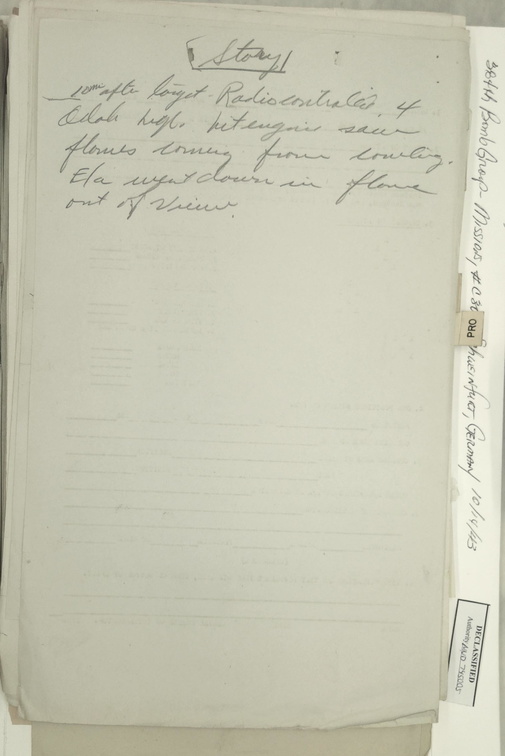 Story
10 min after target. Radio controlled. 4
high. hit engine saw
flames coming from cowling.
E/a went down in flame
out of view.
384th Bomb Group - Mission, #
PRO
Schweinfurt, Germany 10/14/43
DECLASSIFIED
Authority NND 745005